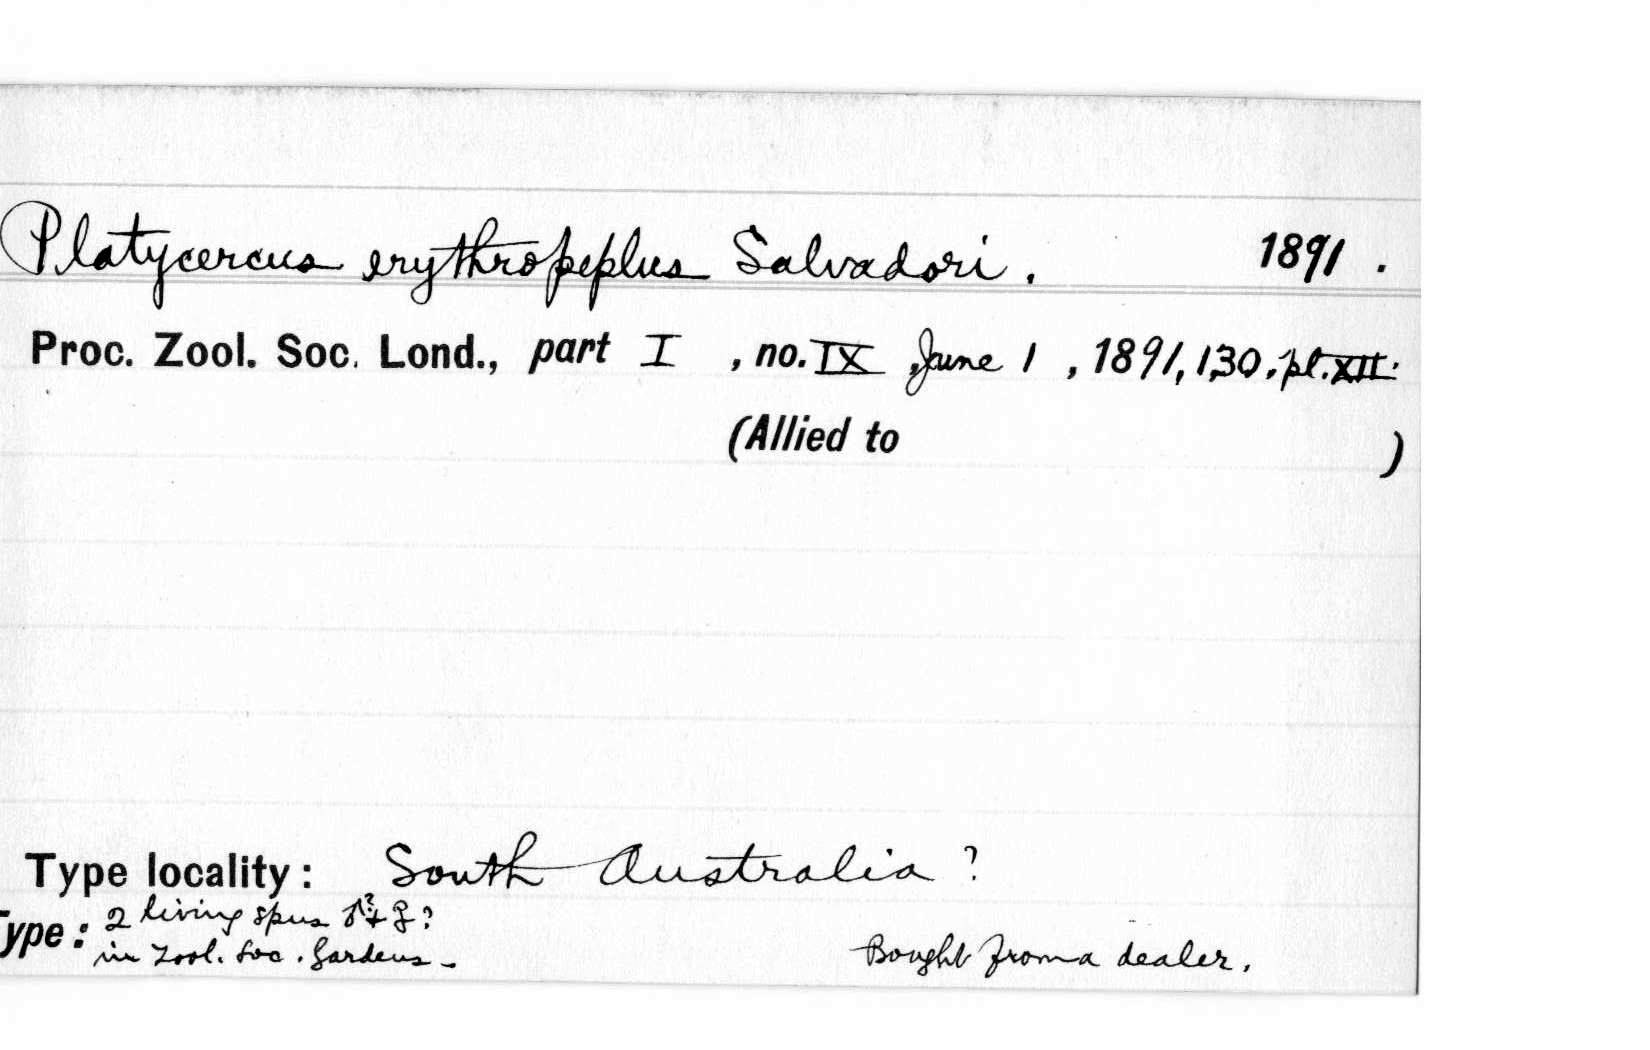 Platycercus erythropeplus Salvadori. 1891.
Proc. Zool. Soc. Lond., part I, no. IX, June 1, 1891, 130, pl. XII.
(Allied to )
Type locality: South Australia?
ype: 2 living spns ♂? + ♀?
in Zool. Soc. Gardens. Bought from a dealer.